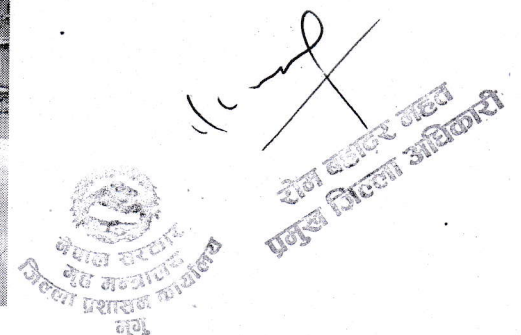 रोम बहादुर महत
प्रमुख जिल्ला अधिकारी
नेपाल सरकार
गृह मन्त्रालय
जिल्ला प्रशासन कार्यालय
मुगु